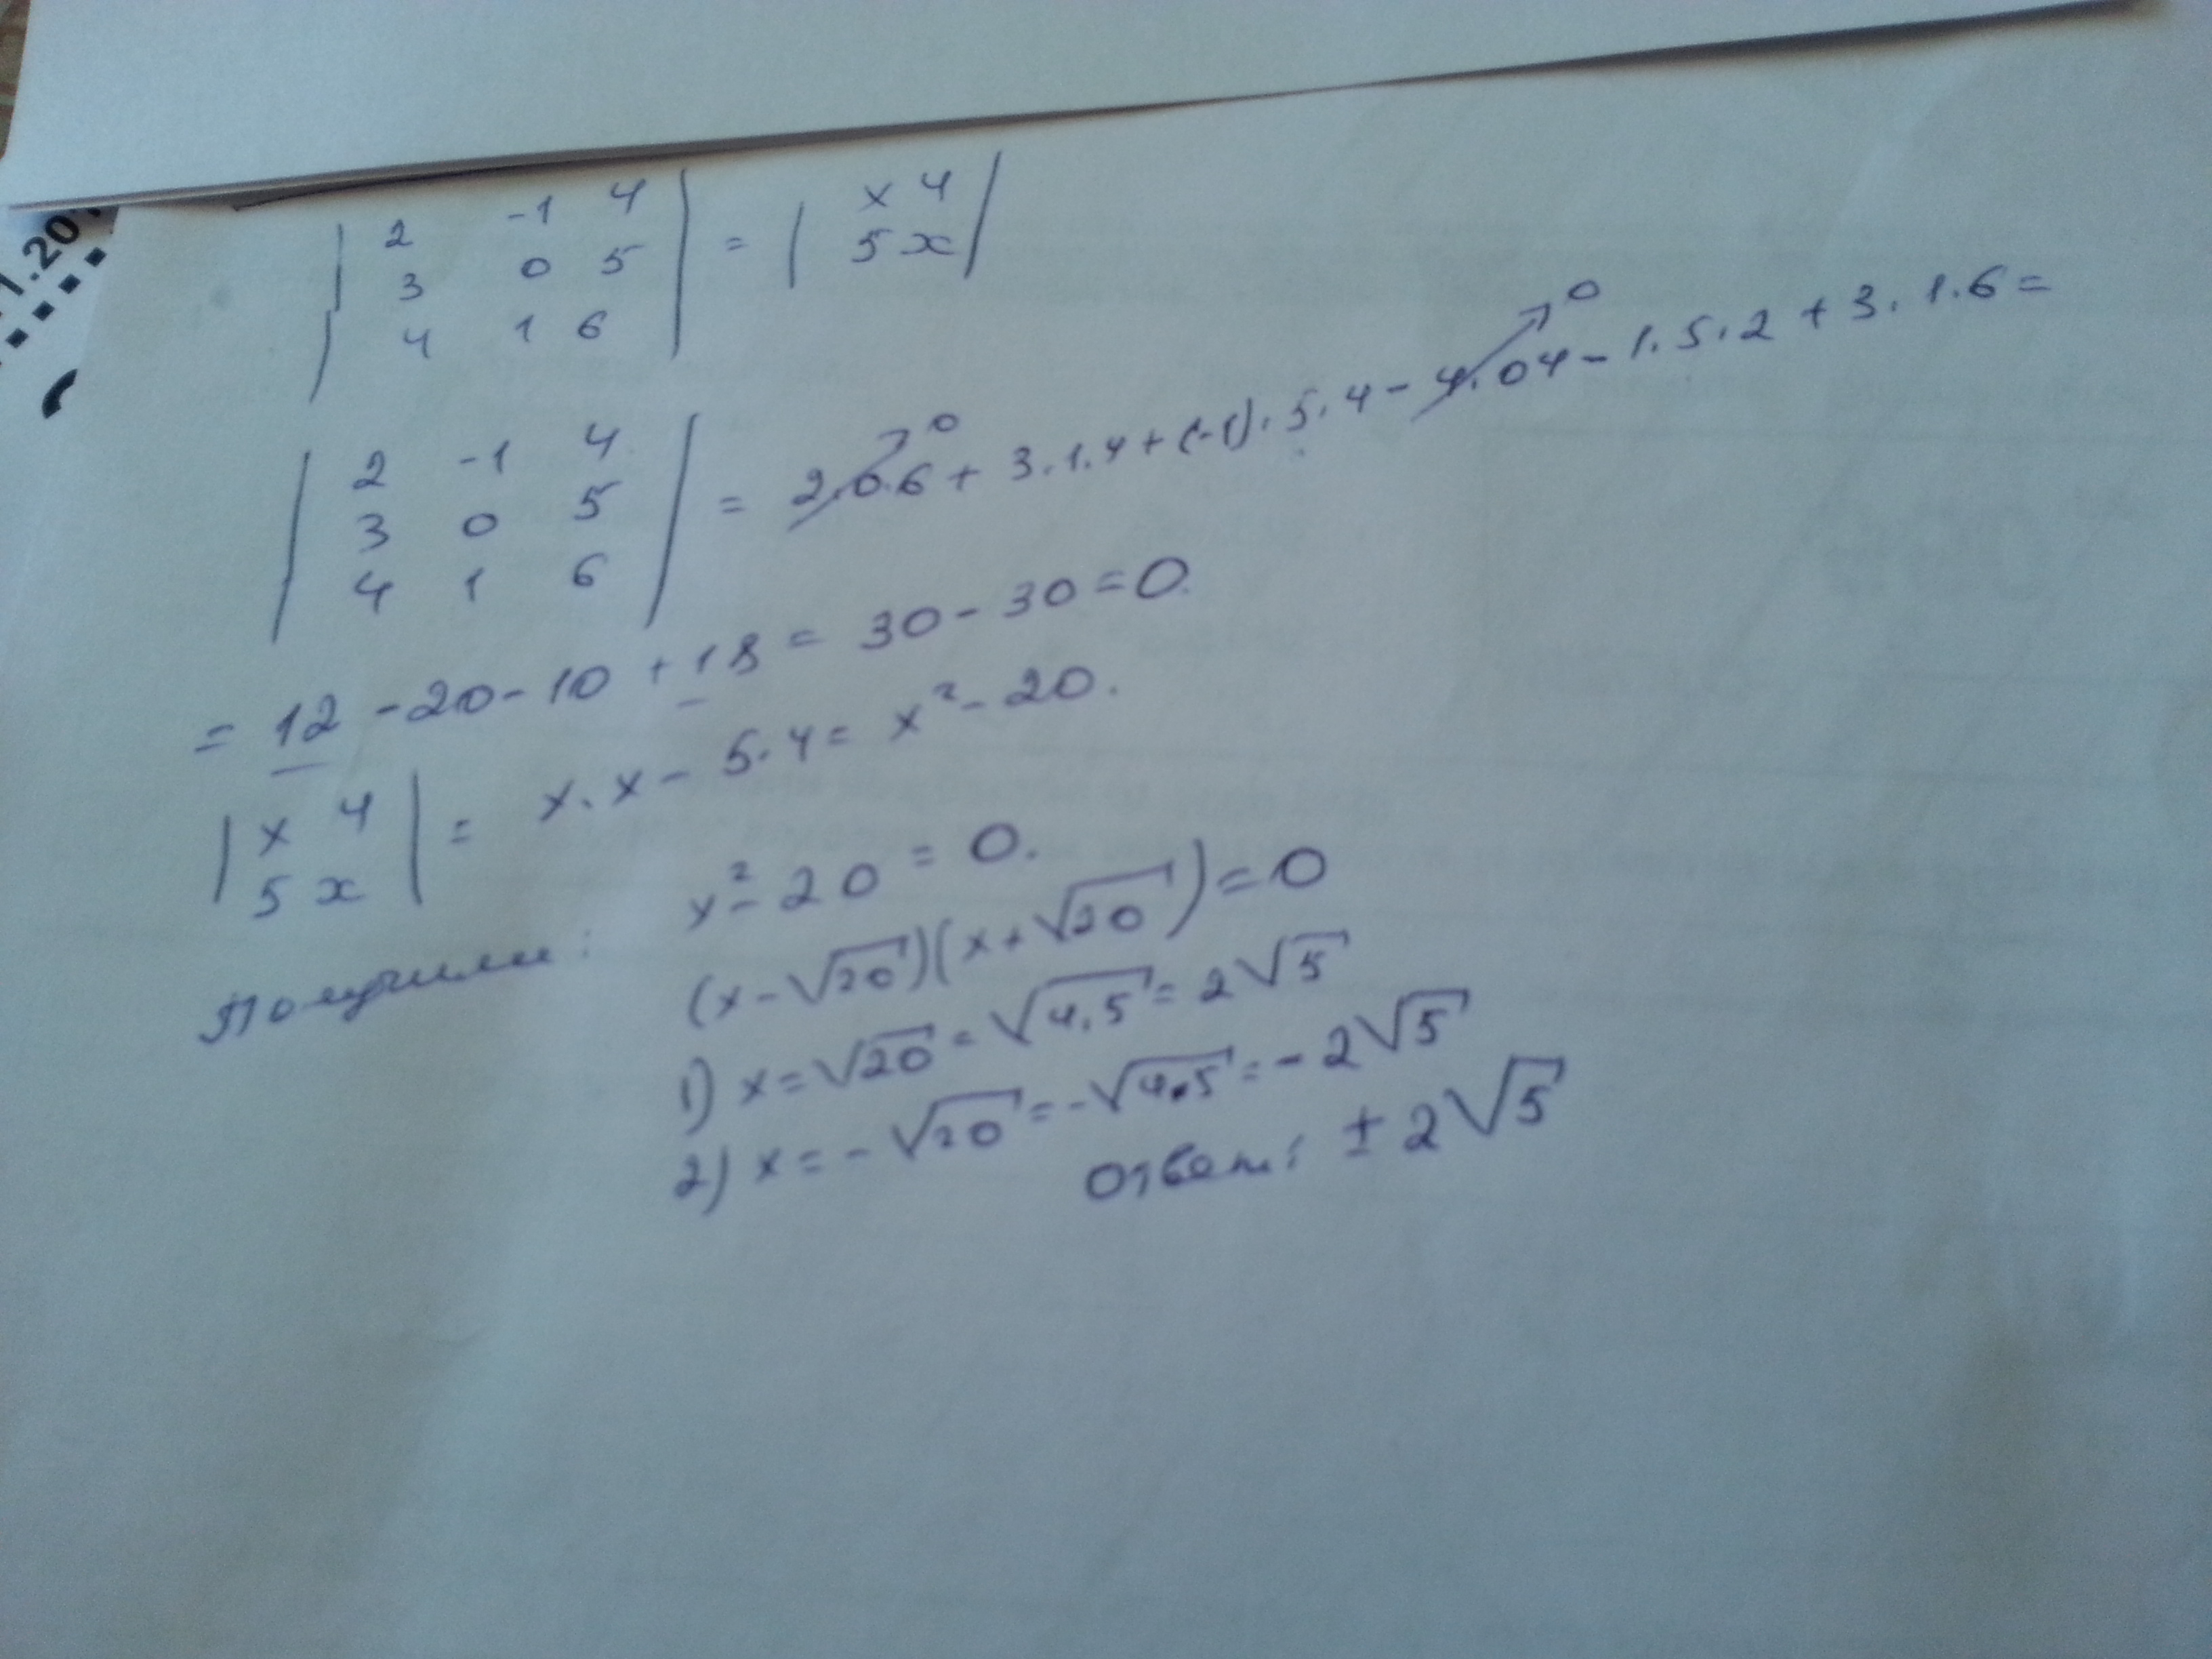 1.20
| 2 -1 4 |
| 3 0 5 | = | x 4 |
| 4 1 6 | | 5 x |
| 2 -1 4 |
| 3 0 5 | = 2.0.6 → 0 + 3.1.4 + (-1).5.4 - 4.04 → 0 - 1.5.2 + 3.1.6 =
| 4 1 6 |
= 12 - 20 - 10 + 18 = 30 - 30 = 0.
| x 4 |
| 5 x | = x.x - 5.4 = x² - 20.
Получили: x² - 20 = 0.
(x - √20)(x + √20) = 0
1) x = √20 = √4.5 = 2√5
2) x = - √20 = - √4.5 = - 2√5
Ответ: ± 2√5